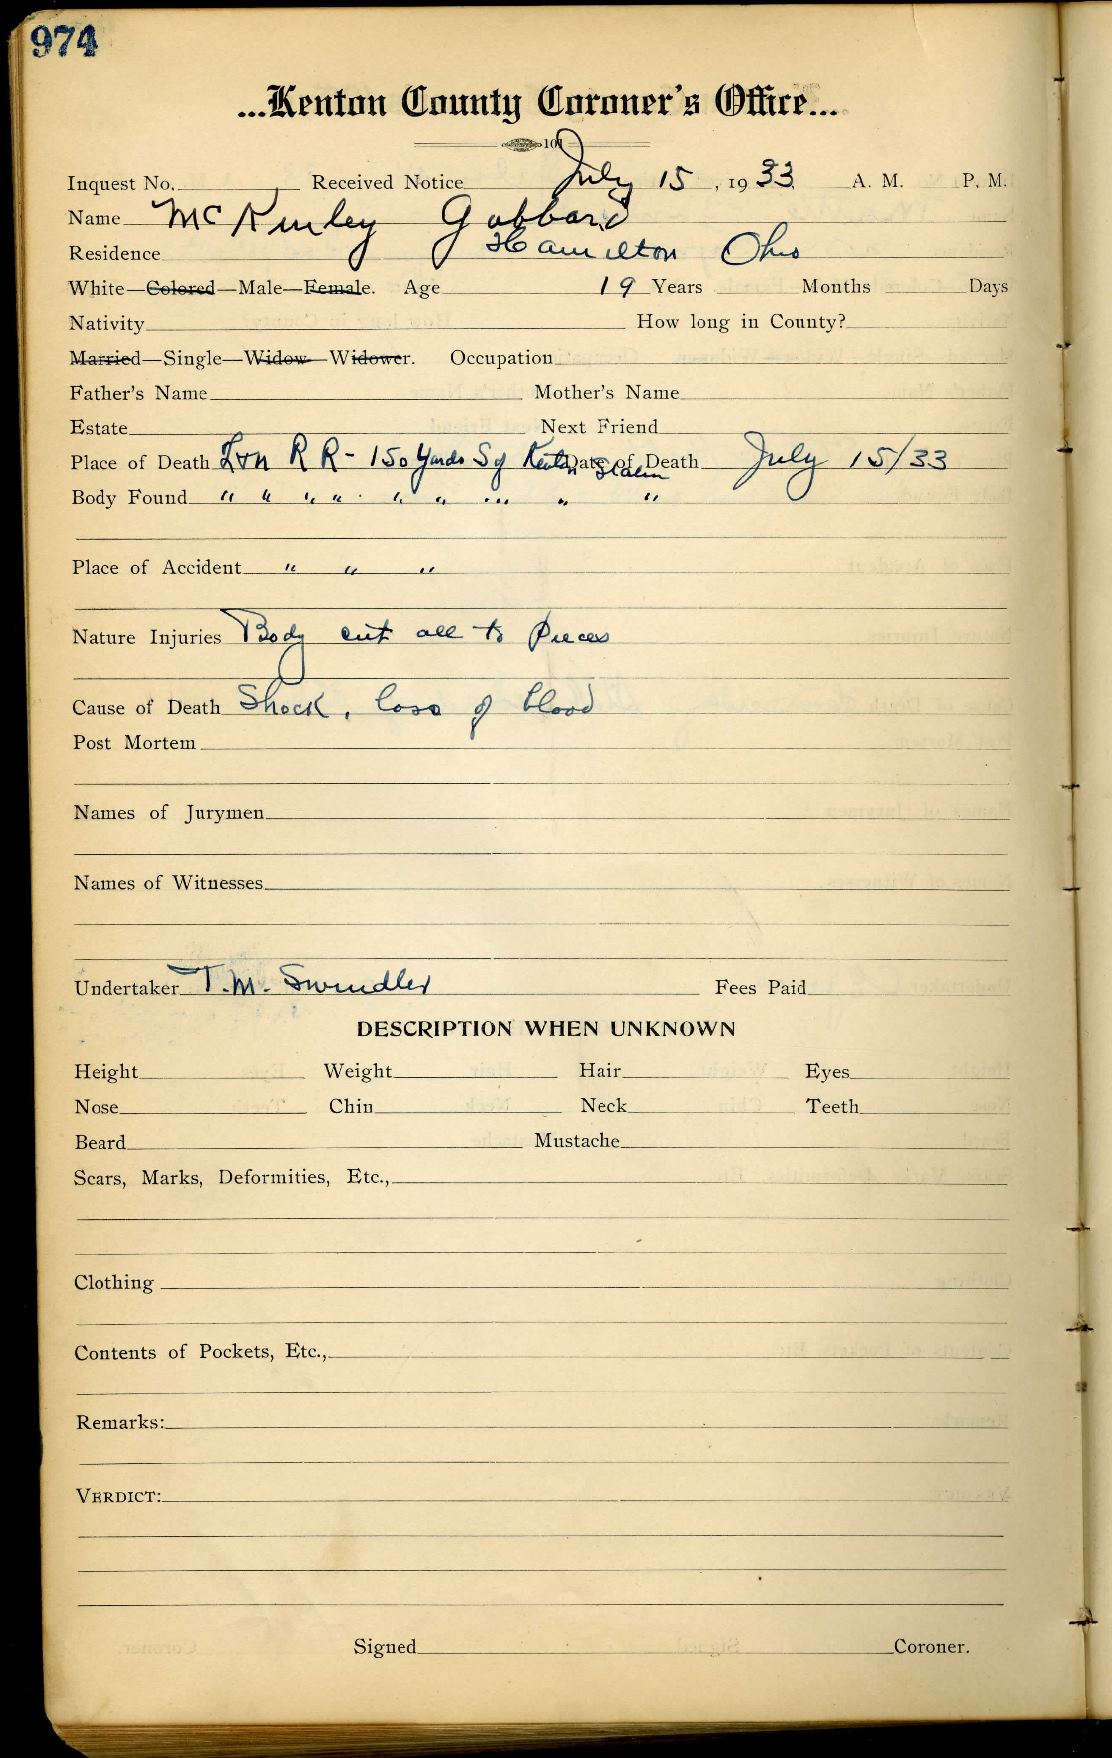 974
...Kenton County Coroner's Office...
101
Inquest No. Received Notice July 15, 1933 A. M. P. M.
Name McKinley Gabbard
Residence Hamilton Ohio
White—Colored—Male—Female. Age 19 Years Months Days
Nativity How long in County?
Married—Single—Widow—Widower. Occupation
Father's Name Mother's Name
Estate Next Friend
Place of Death L+N R R - 150 Yards S of Kenton Station Date of Death July 15/33
Body Found " " " " " " " " "
Place of Accident " " "
Nature Injuries Body cut all to pieces
Cause of Death Shock, loss of blood
Post Mortem
Names of Jurymen
Names of Witnesses
Undertaker T.M. Swindler Fees Paid
DESCRIPTION WHEN UNKNOWN
Height Weight Hair Eyes
Nose Chin Neck Teeth
Beard Mustache
Scars, Marks, Deformities, Etc.,
Clothing
Contents of Pockets, Etc.,
Remarks:
VERDICT:
Signed Coroner.